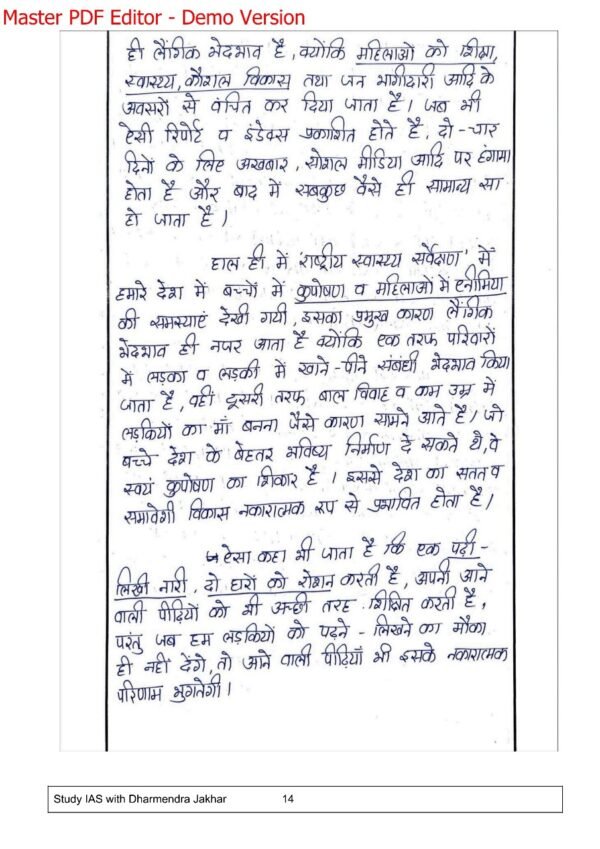 Master PDF Editor - Demo Version
ही लैंगिक भेदभाव है, क्योंकि महिलाओं को शिक्षा,
स्वास्थ्य, कौशल विकास तथा जन भागीदारी आदि के
अवसरों से वंचित कर दिया जाता है। जब भी
ऐसी रिपोर्ट व इंडेक्स प्रकाशित होते हैं, दो-चार
दिनों के लिए अखबार, सोशल मीडिया आदि पर हंगामा
होता है और बाद में सबकुछ वैसे ही सामान्य सा
हो जाता है।
हाल ही में 'राष्ट्रीय स्वास्थ्य सर्वेक्षण' में
हमारे देश में बच्चों में कुपोषण व महिलाओं में एनीमिया
की समस्याएं देखी गयी, इसका प्रमुख कारण लैंगिक
भेदभाव ही नजर आता है क्योंकि एक तरफ परिवारों
में लड़का व लड़की में खाने-पीने संबंधी भेदभाव किया
जाता है, वही दूसरी तरफ बाल विवाह व कम उम्र में
लड़कियों का माँ बनना जैसे कारण सामने आते है। जो
बच्चे देश के बेहतर भविष्य निर्माण दे सकते थे, वे
स्वयं कुपोषण का शिकार है। इससे देश का सतत व
समावेशी विकास नकारात्मक रूप से प्रभावित होता है।
↳ ऐसा कहा भी जाता है कि एक पढ़ी-
लिखी नारी, दो घरों को रोशन करती है, अपनी आने
वाली पीढ़ियों को भी अच्छी तरह शिक्षित करती है,
परंतु जब हम लड़कियों को पढ़ने-लिखने का मौका
ही नहीं देंगे, तो आने वाली पीढ़ियाँ भी इसके नकारात्मक
परिणाम भुगतेगी।
Study IAS with Dharmendra Jakhar 14